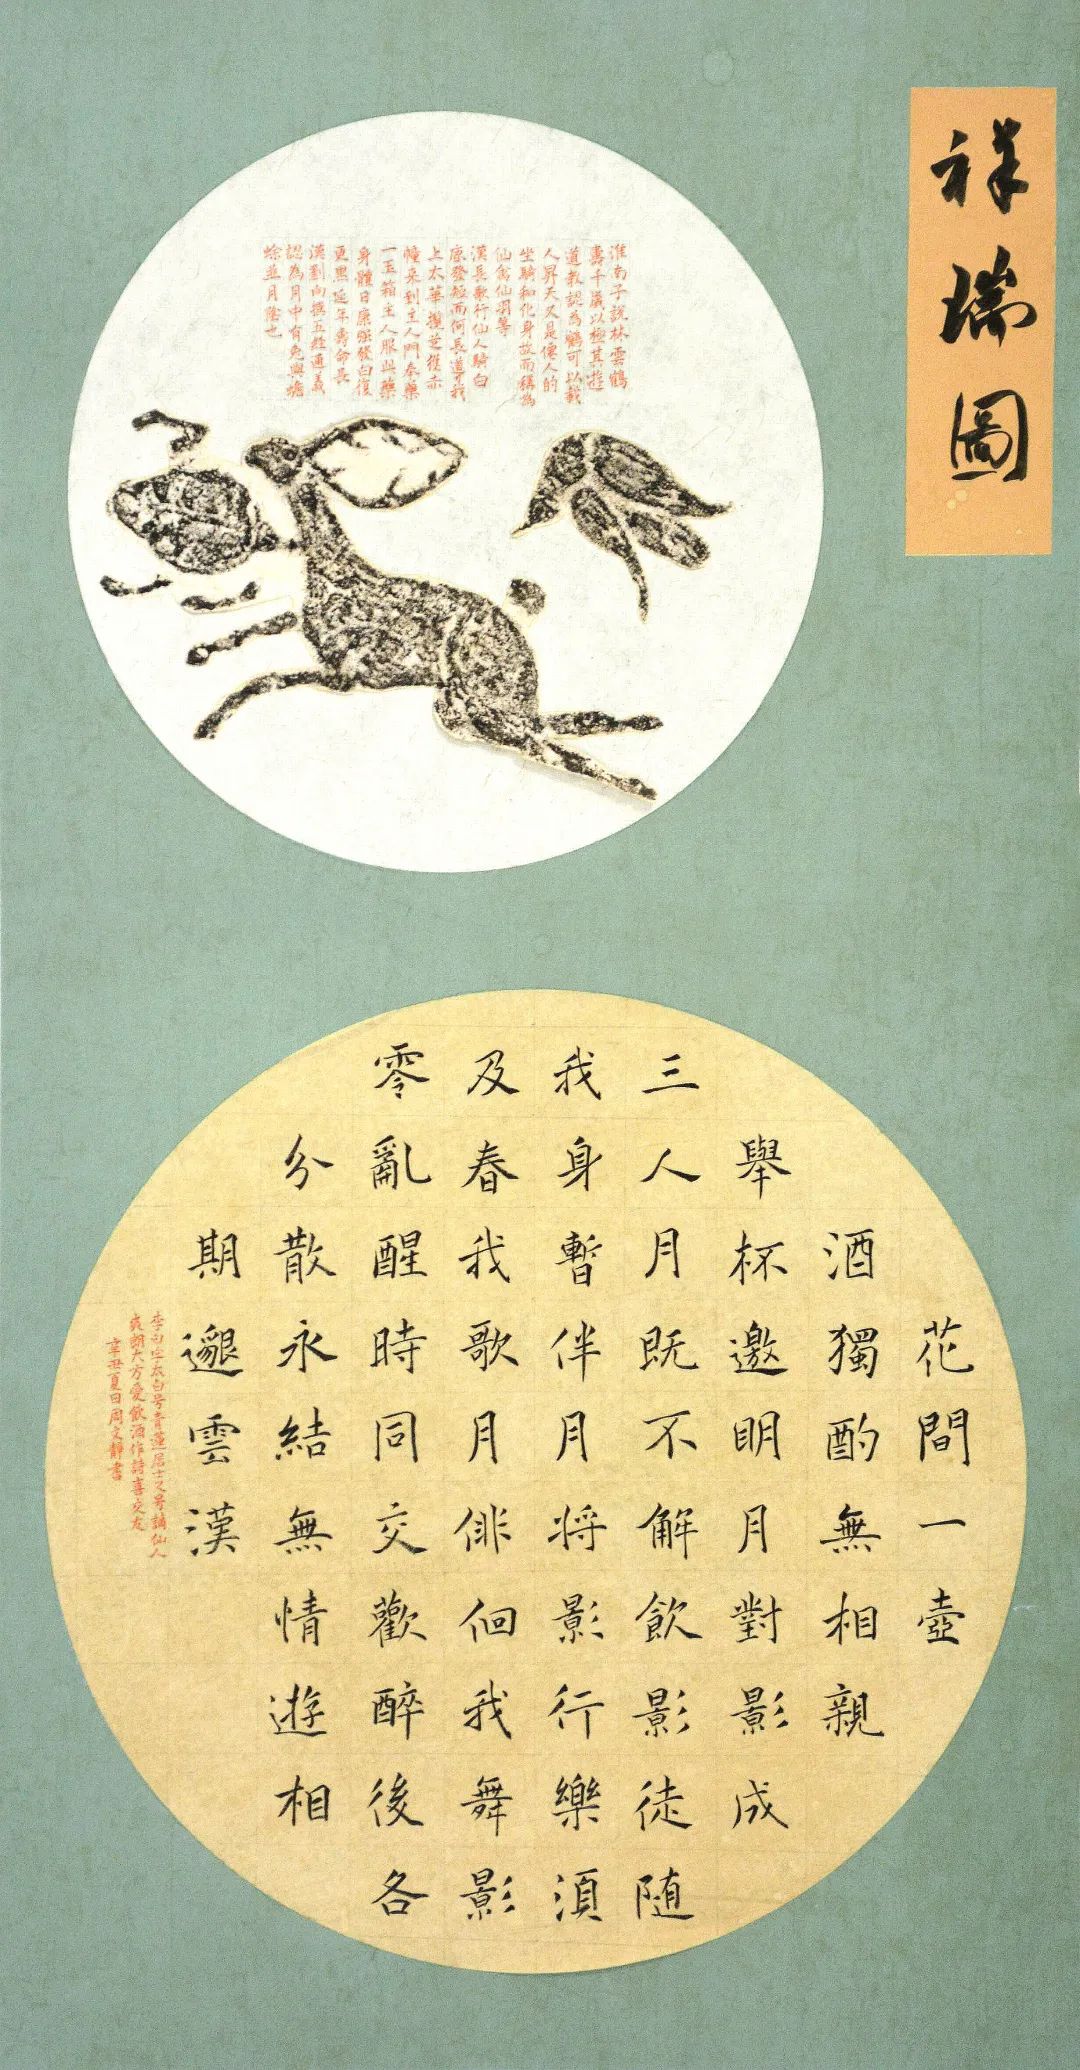 祥瑞圖
淮南子說林雲鶴
壽千歲以極其遊
道教認為鶴可以載
人昇天又是僊人的
坐騎和化身故而稱為
仙禽仙羽等
漢長歌行仙人騎白
鹿發短而何長道我
上太華攬芝獲赤
幢來到主人門奉藥
一玉箱主人服此藥
身體日康強發白復
更黑延年壽命長
漢劉向撰五經通義
認為月中有兔與蟾
蜍並月陰也
花間一壺
酒獨酌無相親
舉杯邀明月對影成
三人月既不解飲影徒随
我身暫伴月将影行樂須
及春我歌月俳佪我舞影
零亂醒時同交歡醉後各
分散永結無情遊相
期邈雲漢
李白字太白号青蓮居士又号謫仙人
爽朗大方愛飲酒作詩喜交友
辛丑夏日周文靜書